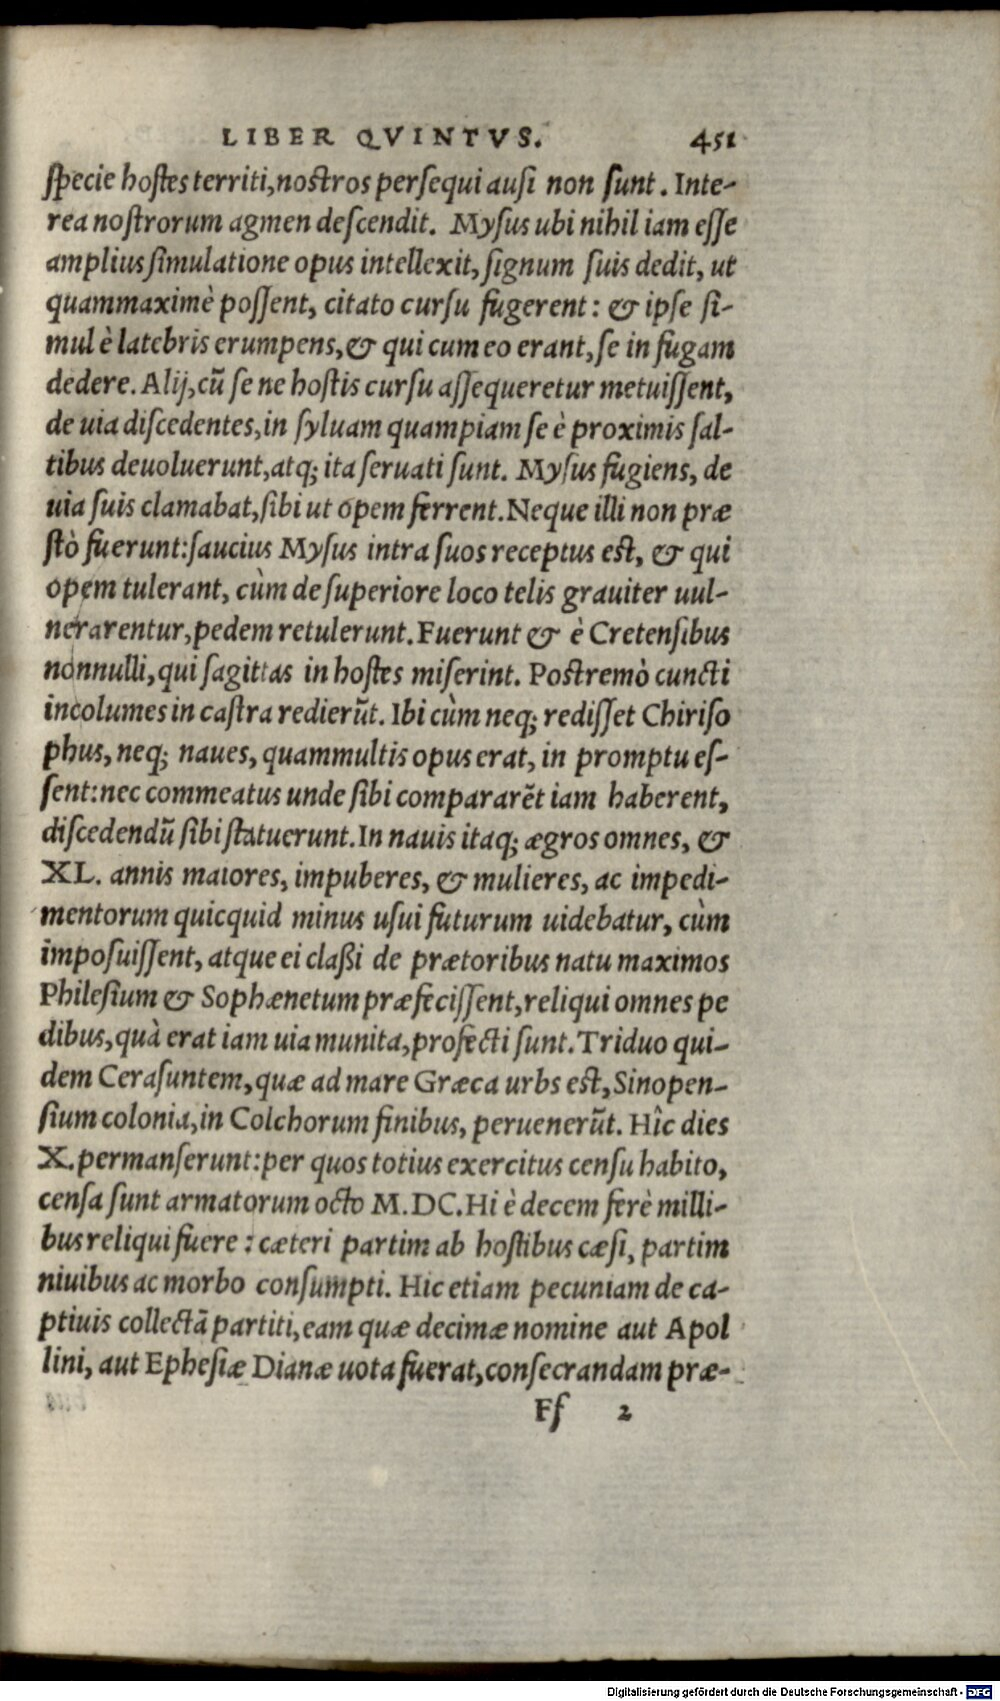 LIBER QVINTVS. 451
specie hostes territi, nostros persequi ausi non sunt. Inte-
rea nostrorum agmen descendit. Mysus ubi nihil iam esse
amplius simulatione opus intellexit, signum suis dedit, ut
quammaximè possent, citato cursu fugerent: & ipse si-
mul è latebris erumpens, & qui cum eo erant, se in fugam
dedere. Alij, cū se ne hostis cursu assequeretur metuissent,
de uia discedentes, in syluam quampiam se è proximis sal-
tibus deuoluerunt, atq; ita seruati sunt. Mysus fugiens, de
uia suis clamabat, sibi ut opem ferrent. Neque illi non præ
stò fuerunt: saucius Mysus intra suos receptus est, & qui
opem tulerant, cùm de superiore loco telis grauiter uul-
nerarentur, pedem retulerunt. Fuerunt & è Cretensibus
nonnulli, qui sagittas in hostes miserint. Postremò cuncti
incolumes in castra redierūt. Ibi cùm neq; redisset Chiriso
phus, neq; naues, quammultis opus erat, in promptu es-
sent: nec commeatus unde sibi compararēt iam haberent,
discedendū sibi statuerunt. In nauis itaq; ægros omnes, &
XL. annis maiores, impuberes, & mulieres, ac impedi-
mentorum quicquid minus usui futurum uidebatur, cùm
imposuissent, atque ei classi de prætoribus natu maximos
Philesium & Sophænetum præfecissent, reliqui omnes pe
dibus, quà erat iam uia munita, profecti sunt. Triduo qui-
dem Cerasuntem, quæ ad mare Græca urbs est, Sinopen-
sium colonia, in Colchorum finibus, peruenerūt. Hîc dies
X. permanserunt: per quos totius exercitus censu habito,
censa sunt armatorum octo M. DC. Hi è decem ferè milli-
bus reliqui fuere: cæteri partim ab hostibus cæsi, partim
niuibus ac morbo consumpti. Hic etiam pecuniam de ca-
ptiuis collectā partiti, eam quæ decimæ nomine aut Apol
lini, aut Ephesiæ Dianæ uota fuerat, consecrandam præ-
Ff 2
Digitalisierung gefördert durch die Deutsche Forschungsgemeinschaft - DFG